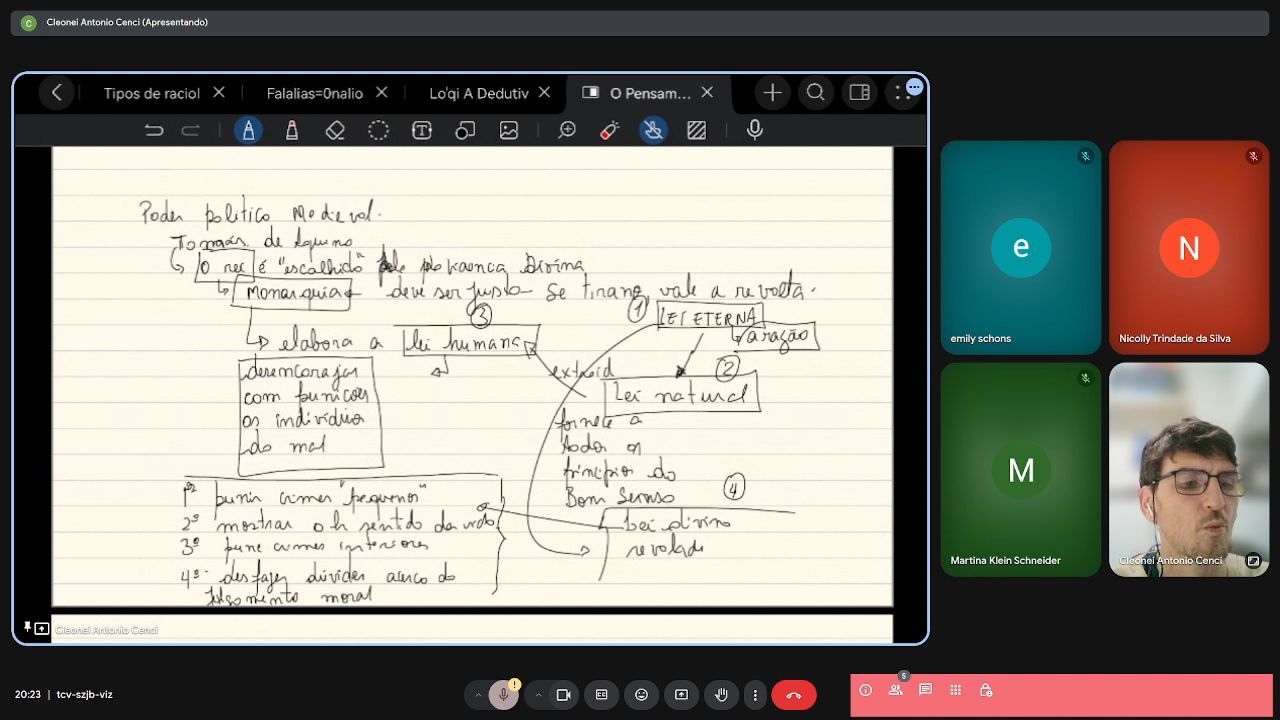 C Cleonei Antonio Cenci (Apresentando)
Tipos de raciol × Falalias=0nalio × Lo'qi A Dedutiv × O Pensam... ×
Poder político Medieval.
Tomás de Aquino
O rei é "escolhido" pela Divina
Monarquia deve ser justo – se tirano, vale a revolta.
③ ① LEI ETERNA
elabora a lei humana a razão
desencorajar extraid ②
com punições Lei natural
os indivíduos fornece a
do mal todos os
princípios do
1º punir crimes "pequenos" Bom Senso ④
2º mostrar o sentido da vida Lei divina
3º pune crimes interiores revelada
4º desfazer dúvidas acerca do
moral
Cleonei Antonio Cenci
e
emily schons
N
Nicolly Trindade da Silva
M
Martina Klein Schneider
Cleonei Antonio Cenci
20:23 | tcv-szjb-viz
5